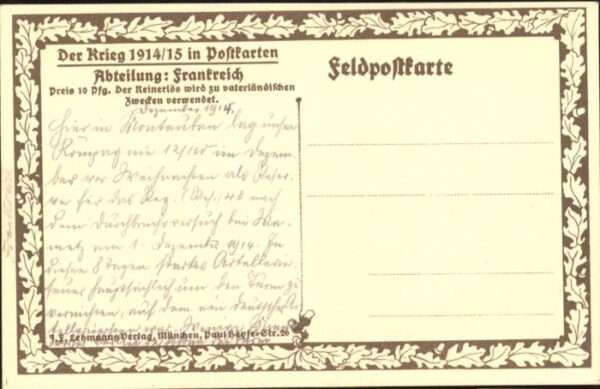 Der Krieg 1914/15 in Postkarten
Abteilung: Frankreich
Preis 10 Pfg. Der Reinerlös wird zu vaterländischen
Zwecken verwendet.
Feldpostkarte
Dezember 1914.
Hier in Montauban lag unsre
Kompagnie 12/110 im Dezem-
ber vor Weihnachten als Reser-
ve für das Reg. (Bef.) 40 nach
dem Durchbruchversuch bei Ma-
metz am 1. Dezember 1914. In
diesen 8 Tagen starkes Artillerie-
feuer hauptsächlich um den Turm zu
vernichten, auf dem ein deutscher
J. F. Lehmanns Verlag, München, Paul Heyse-Str. 26